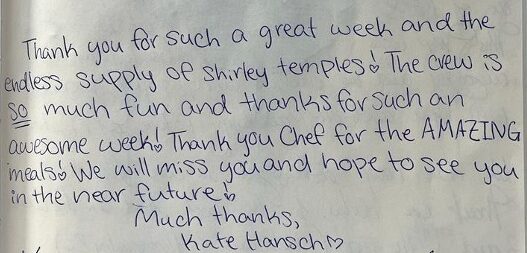 Thank you for such a great week and the
endless supply of shirley temples! The crew is
so much fun and thanks for such an
awesome week! Thank you Chef for the AMAZING
meals! We will miss you and hope to see you
in the near future!
Much thanks,
Kate Hansch♡